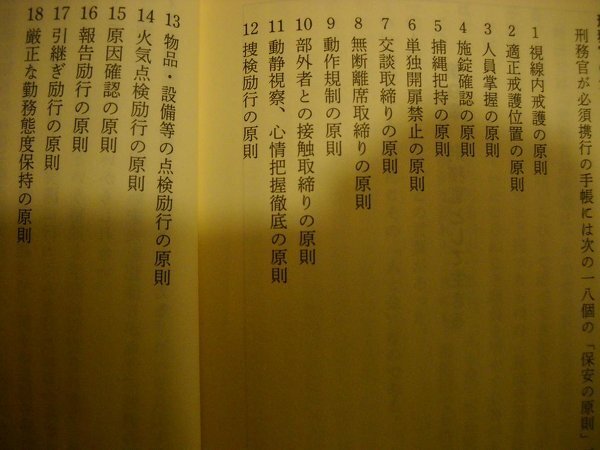 刑務官が必須携行の手帳には次の一八個の「保安の原則」
1 視線内戒護の原則
2 適正戒護位置の原則
3 人員掌握の原則
4 施錠確認の原則
5 捕縄把持の原則
6 単独開扉禁止の原則
7 交談取締りの原則
8 無断離席取締りの原則
9 動作規制の原則
10 部外者との接触取締りの原則
11 動静視察、心情把握徹底の原則
12 捜検励行の原則
13 物品・設備等の点検励行の原則
14 火気点検励行の原則
15 原因確認の原則
16 報告励行の原則
17 引継ぎ励行の原則
18 厳正な勤務態度保持の原則